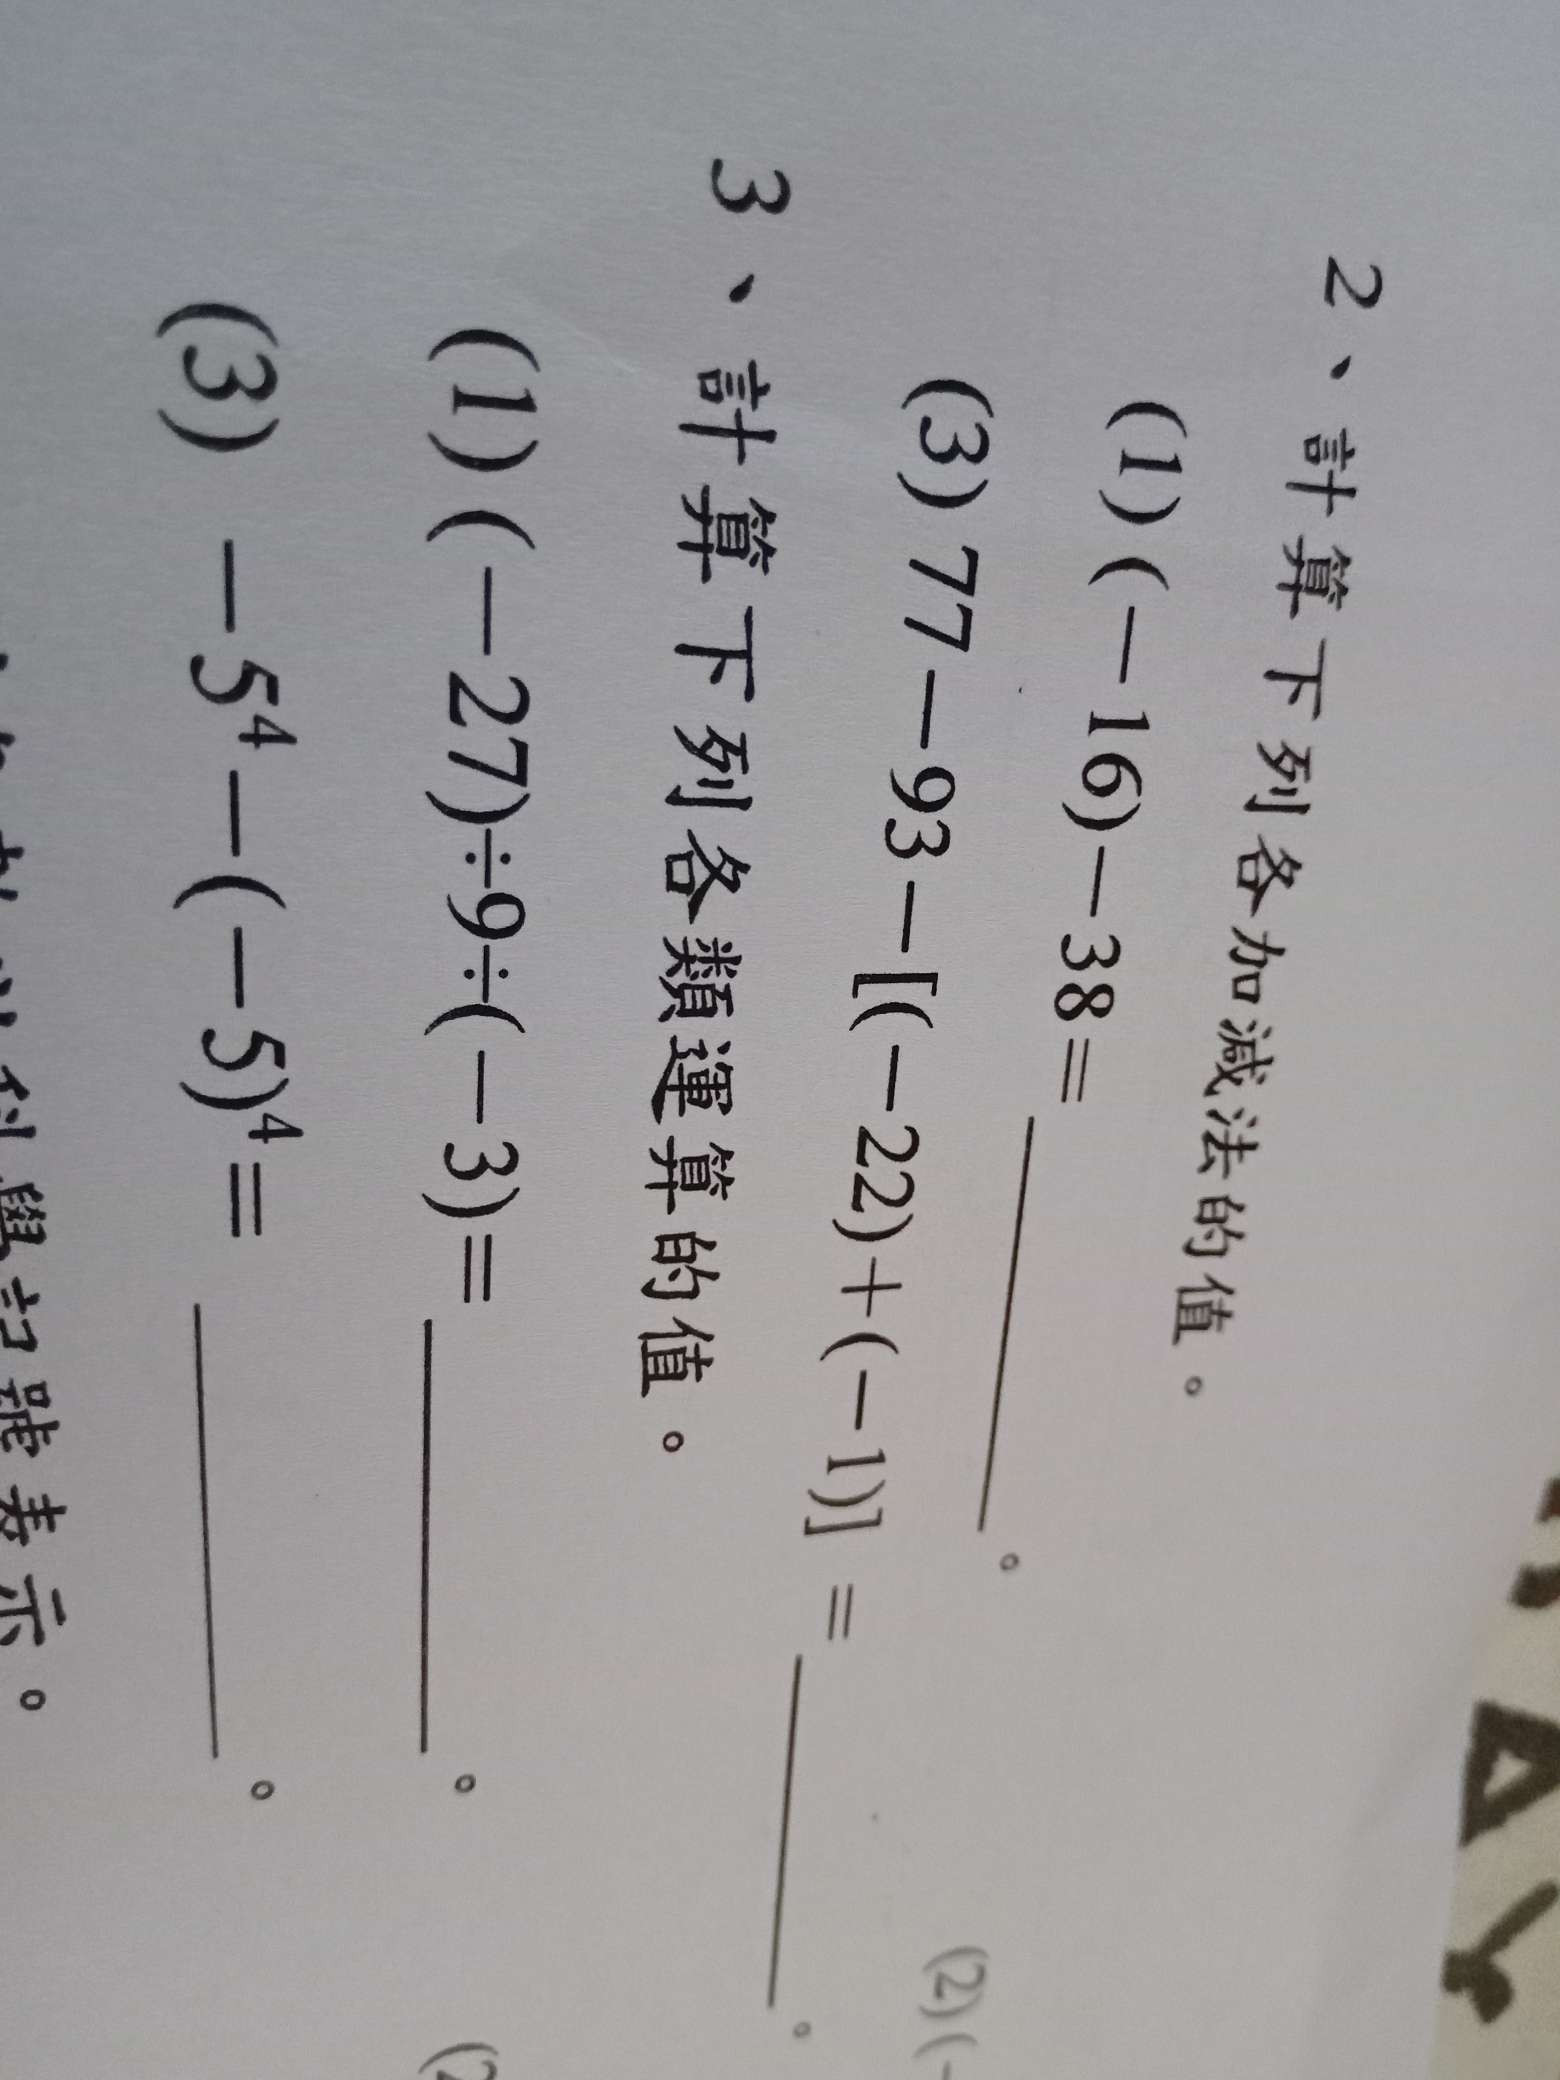 2、計算下列各加減法的值。
(1) (－16)－38＝＿＿＿＿＿。
(2) (－
(3) 77－93－[(－22)＋(－1)] ＝＿＿＿＿＿。
3、計算下列各類運算的值。
(1) (－27)÷9÷(－3)＝＿＿＿＿＿。
(2
(3) －5⁴－(－5)⁴＝＿＿＿＿＿。
科學記號表示。